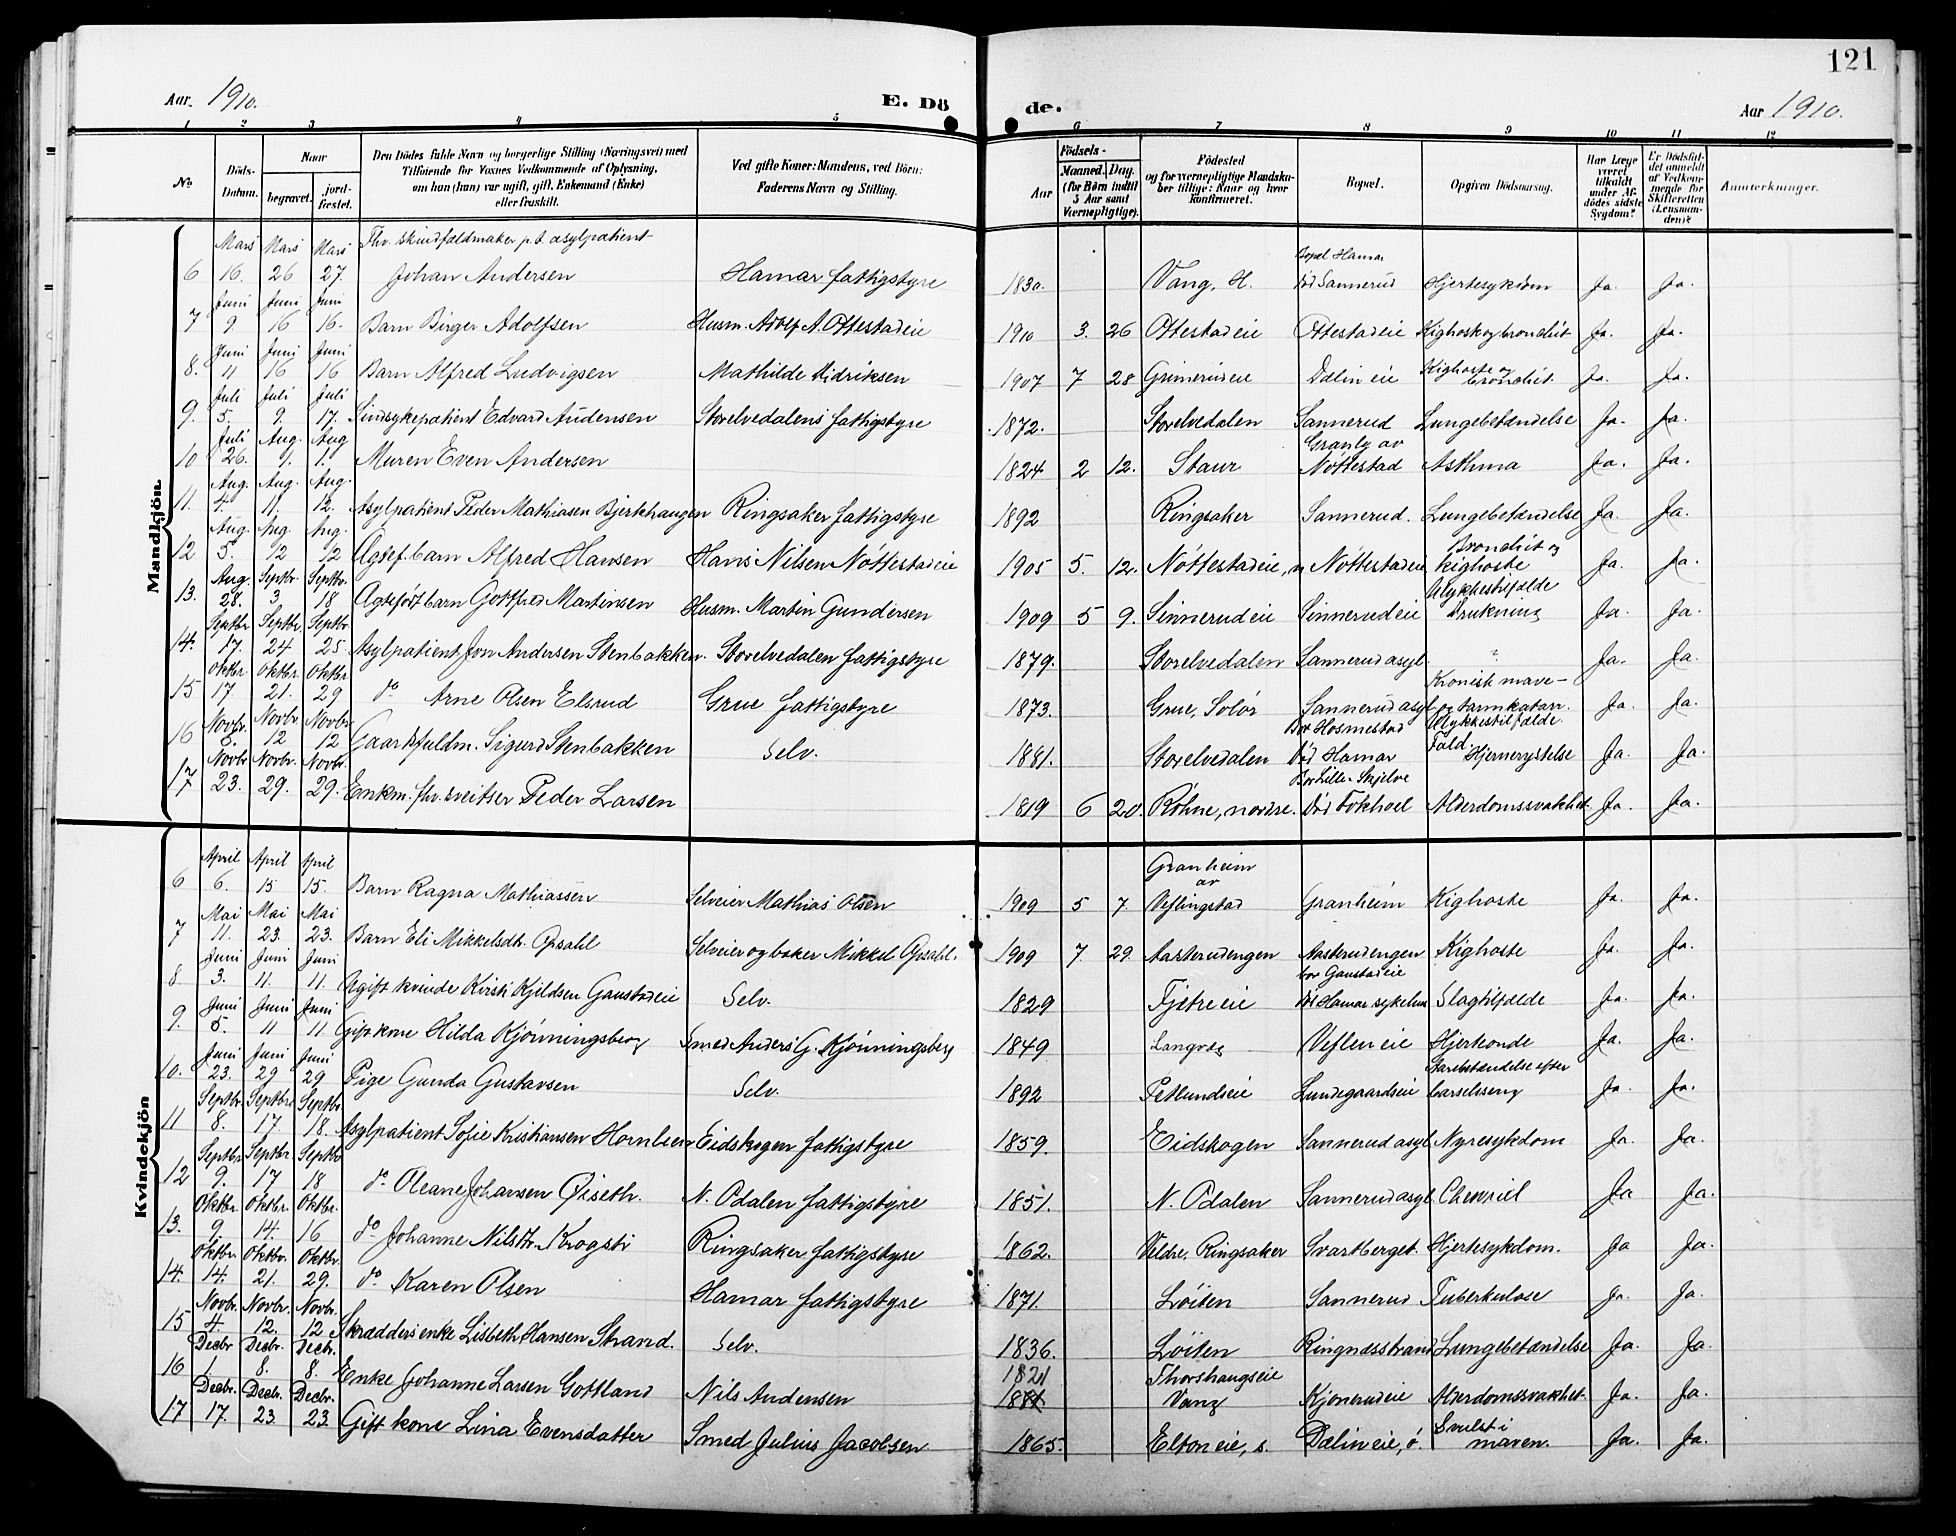 121
Aar. 1910. E. Dö de. Aar 1910.
1 2 3 4 5 6 7 8 9 10 11 12
No. Döds-Datum. Naar begravet. jordfæstet. Den Dödes fulde Navn og borgerlige Stilling (Næringsvei) med Tilföiende for Voxnes Vedkommende af Oplysning, om han (hun) var ugift, gift, Enkemand (Enke) eller fraskilt. Ved gifte Koner: Mandens, ved Börn: Faderens Navn og Stilling. Födsels- Aar Maaned. Dag. (for Börn indtil 5 Aar samt Værnepligtige). Födested og for værnepligtige Mandskaber tillige: Naar og hvor konfirmeret. Bopæl. Opgiven Dödsaarsag. Har Læge været tilkaldt under Afdödes sidste Sygdom? Er Dödsfaldet anmeldt af Vedkommende for Skifteretten (Lensmanden)? Anmærkninger.
Mandkjön
6 Mars 16. Mars 26 Mars 27. Fhv. skindfældmaker p.t. asylpatient Johan Andersen Hamar fattigstyre 1830. Vang, H. Bopæl Hamar död Sannerud Hjertesykdom Ja. Ja.
7 Juni 9 Juni 16 Juni 16. Barn Birger Adolfsen Husm. Adolf A. Ottestadeie 1910 3. 26 Ottestadeie Ottestadeie Kighoste og bronchit Ja. Ja.
8. Juni 11 Juni 16 Juni 16 Barn Alfred Ludvigsen Mathilde Didriksen 1907 7 28 Grimerudeie Dælin eie Kighoste og bronchit Ja. Ja.
9. Juli 5. Juli 9. Juli 17. Sindsykepatient Edvard Andensen Storelvedalens fattigstyre 1872. Storelvedalen Sannerud Lungebetændelse Ja. Ja.
10 Juli 26. Aug. 1. Aug 1. Muren Even Andersen 1824 2 12. Staur Granly av Nöttestad Asthma Ja. Ja.
11. Aug. 4. Aug. 11. Aug. 12. Asylpatient Peder Mathiasen Bjerkhaugen Ringsaker fattigstyre 1892 Ringsaker Sannerud. Lungebetændelse Ja. Ja.
12 Aug. 5. Aug. 12 Aug. 12 Ægtef. barn Alfred Hansen Hans Nilsen Nöttestadeie 1905 5. 12. Nöttestadeie, n Nöttestadeie Bronchit og kighoste Ja. Ja.
13. Aug. 28. Septbr. 3 Septbr. 18 Ægteföst barn Gottfred Martinsen Husm. Martin Gundersen 1909 5 9. Sinnerudeie Sinnerudeie Ulykkestilfælde Drukning Ja. Ja.
14. Septbr 17. Septbr. 24 Septbr 25 Asylpatient Jon Andersen Stenbakken. Storelvedalen fattigstyre 1879. Storelvedalen Sannerud asyl ? Ja. Ja.
15 Oktbr. 17 Oktbr. 21. Oktbr 29 do Arne Olsen Elsrud Grue fattigstyre 1873. Grue, Solör Sannerud asyl Kronisk mave- og tarmkatarr. Ja. Ja.
16 Novbr. 8. Novbr. 12 Novbr. 12 Gaardsfuldm. Sigurd Stenbakken Selv. 1881. Storelvedalen Bor Hosmestad död Hamar Ulykkestilfælde. Fald. Hjernerystelse Ja. Ja.
17 Novbr 23. Novbr. 29. Novbr. 29. Enkm. fhv. sveitser Peder Larsen 1819 6 20. Röhne, nordre. Bor Lille-Skjelve död Tokhoel Alderdomssvakhet. Ja. Ja.
Kvindekjön
6 April 6. April 15 April 15. Barn Ragna Mathiassen Selveier Mathias Olsen 1909 5 7. Granheim av Veflingstad Granheim Kighoste Ja. Ja.
7 Mai 11. Mai 23. Mai 23. Barn Eli Mikkelsdtr. Opsahl Selveier og baker Mikkel Opsahl. 1909 7. 29. Aasterudengen Aasterudengen Kighoste Ja. Ja.
8 Juni 3. Juni 11. Juni 11. Ugift kvinde Kirsti Kjeldsen Gaustadeie Selv. 1829 Tjetre eie bor Gaustadeie död Hamar sykehus Slagtilfælde Ja. Ja.
9. Juni 5. Juni 11 Juni 11 Gift kone Hilda Kjönningsberg Smed Anders G. Kjönningsberg 1849 Langvæg Veflen eie Hjerteonde Ja. Ja.
10. Juni 23. Juni 29 Juni 29 Pige Gunda Gustavsen Selv. 1892 Petlundseie Lundegaardseie Aarebetændelse efter barselsseng Ja. Ja.
11 Septbr. 8. Septbr. 17. Septbr 18. Asylpatient Sofie Kristiansen Hornlien Eidskogen fattigstyre 1859. Eidskogen Sannerud asyl Nyresykdom Ja. Ja.
12 Septbr 9. Septbr. 17 Septbr 18 do Oleane Johansen Öiseth. N. Odalen fattigstyre 1851. N. Odalen Sannerud asyl Ja Ja.
13. Oktbr. 9. Oktbr. 14. Oktbr. 16 do Johanne Nilsdtr. Krogsti Ringsaker fattigstyre 1862. Veldre, Ringsaker Svartberget. Hjertesykdom. Ja Ja.
14. Oktbr. 14. Oktbr. 21. Oktbr. 29. do Karen Olsen Hamar fattigstyre 1871. Löiten Sannerud Tuberkulose Ja. Ja.
15 Novbr. 4. Novbr. 12. Novbr. 12 Skrædders enke Lisbeth Hansen Strand. Selv. 1836. Löiten Ringnæsstrand Lungebetændelse Ja. Ja.
16 Decbr 1. Decbr. 8. Decbr. 8. Enke Johanne Larsen Gottland Nils Andensen 1821 Thorshaugseie Vang Kjonerudeie Alderdomssvakhet. Ja. Ja.
17 Decbr. 17. Decbr. 23 Decbr. 23. Gift kone Lina Evensdatter Smed Julius Jacobsen 1865. Elton eie, s. Dælin eie, ö. Svulst i maven. Ja. Ja.